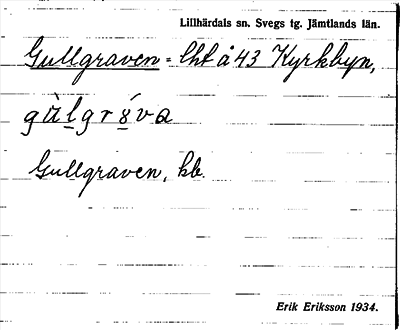 Lillhärdals sn. Svegs tg. Jämtlands län.
Gullgraven = lht å 43 Kyrkbyn,
Gullgraven, kb.
Erik Eriksson 1934.